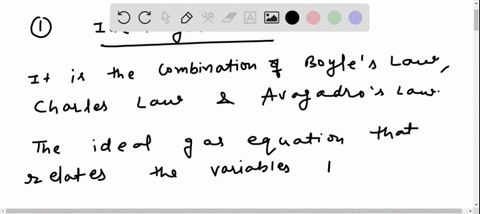 ①
It is the combination of Boyle's Law,
Charles Law & Avagadro's Law.
The ideal gas equation that
relates the variables